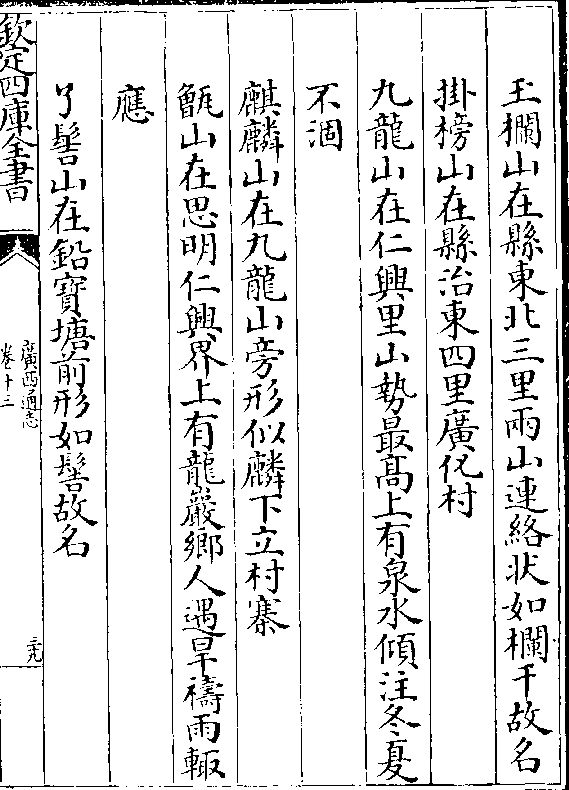 玉欄山在縣東北三里兩山連絡狀如欄干故名
掛榜山在縣治東四里廣化村
九龍山在仁興里山勢最高上有泉水傾注冬夏
不涸
麒麟山在九龍山旁形似麟下立村寨
甑山在思明仁興界上有龍巖鄉人遇旱禱雨輙
應
丫髻山在鉛寶塘前形如髻故名
欽定四庫全書
廣西通志
卷十三
三九